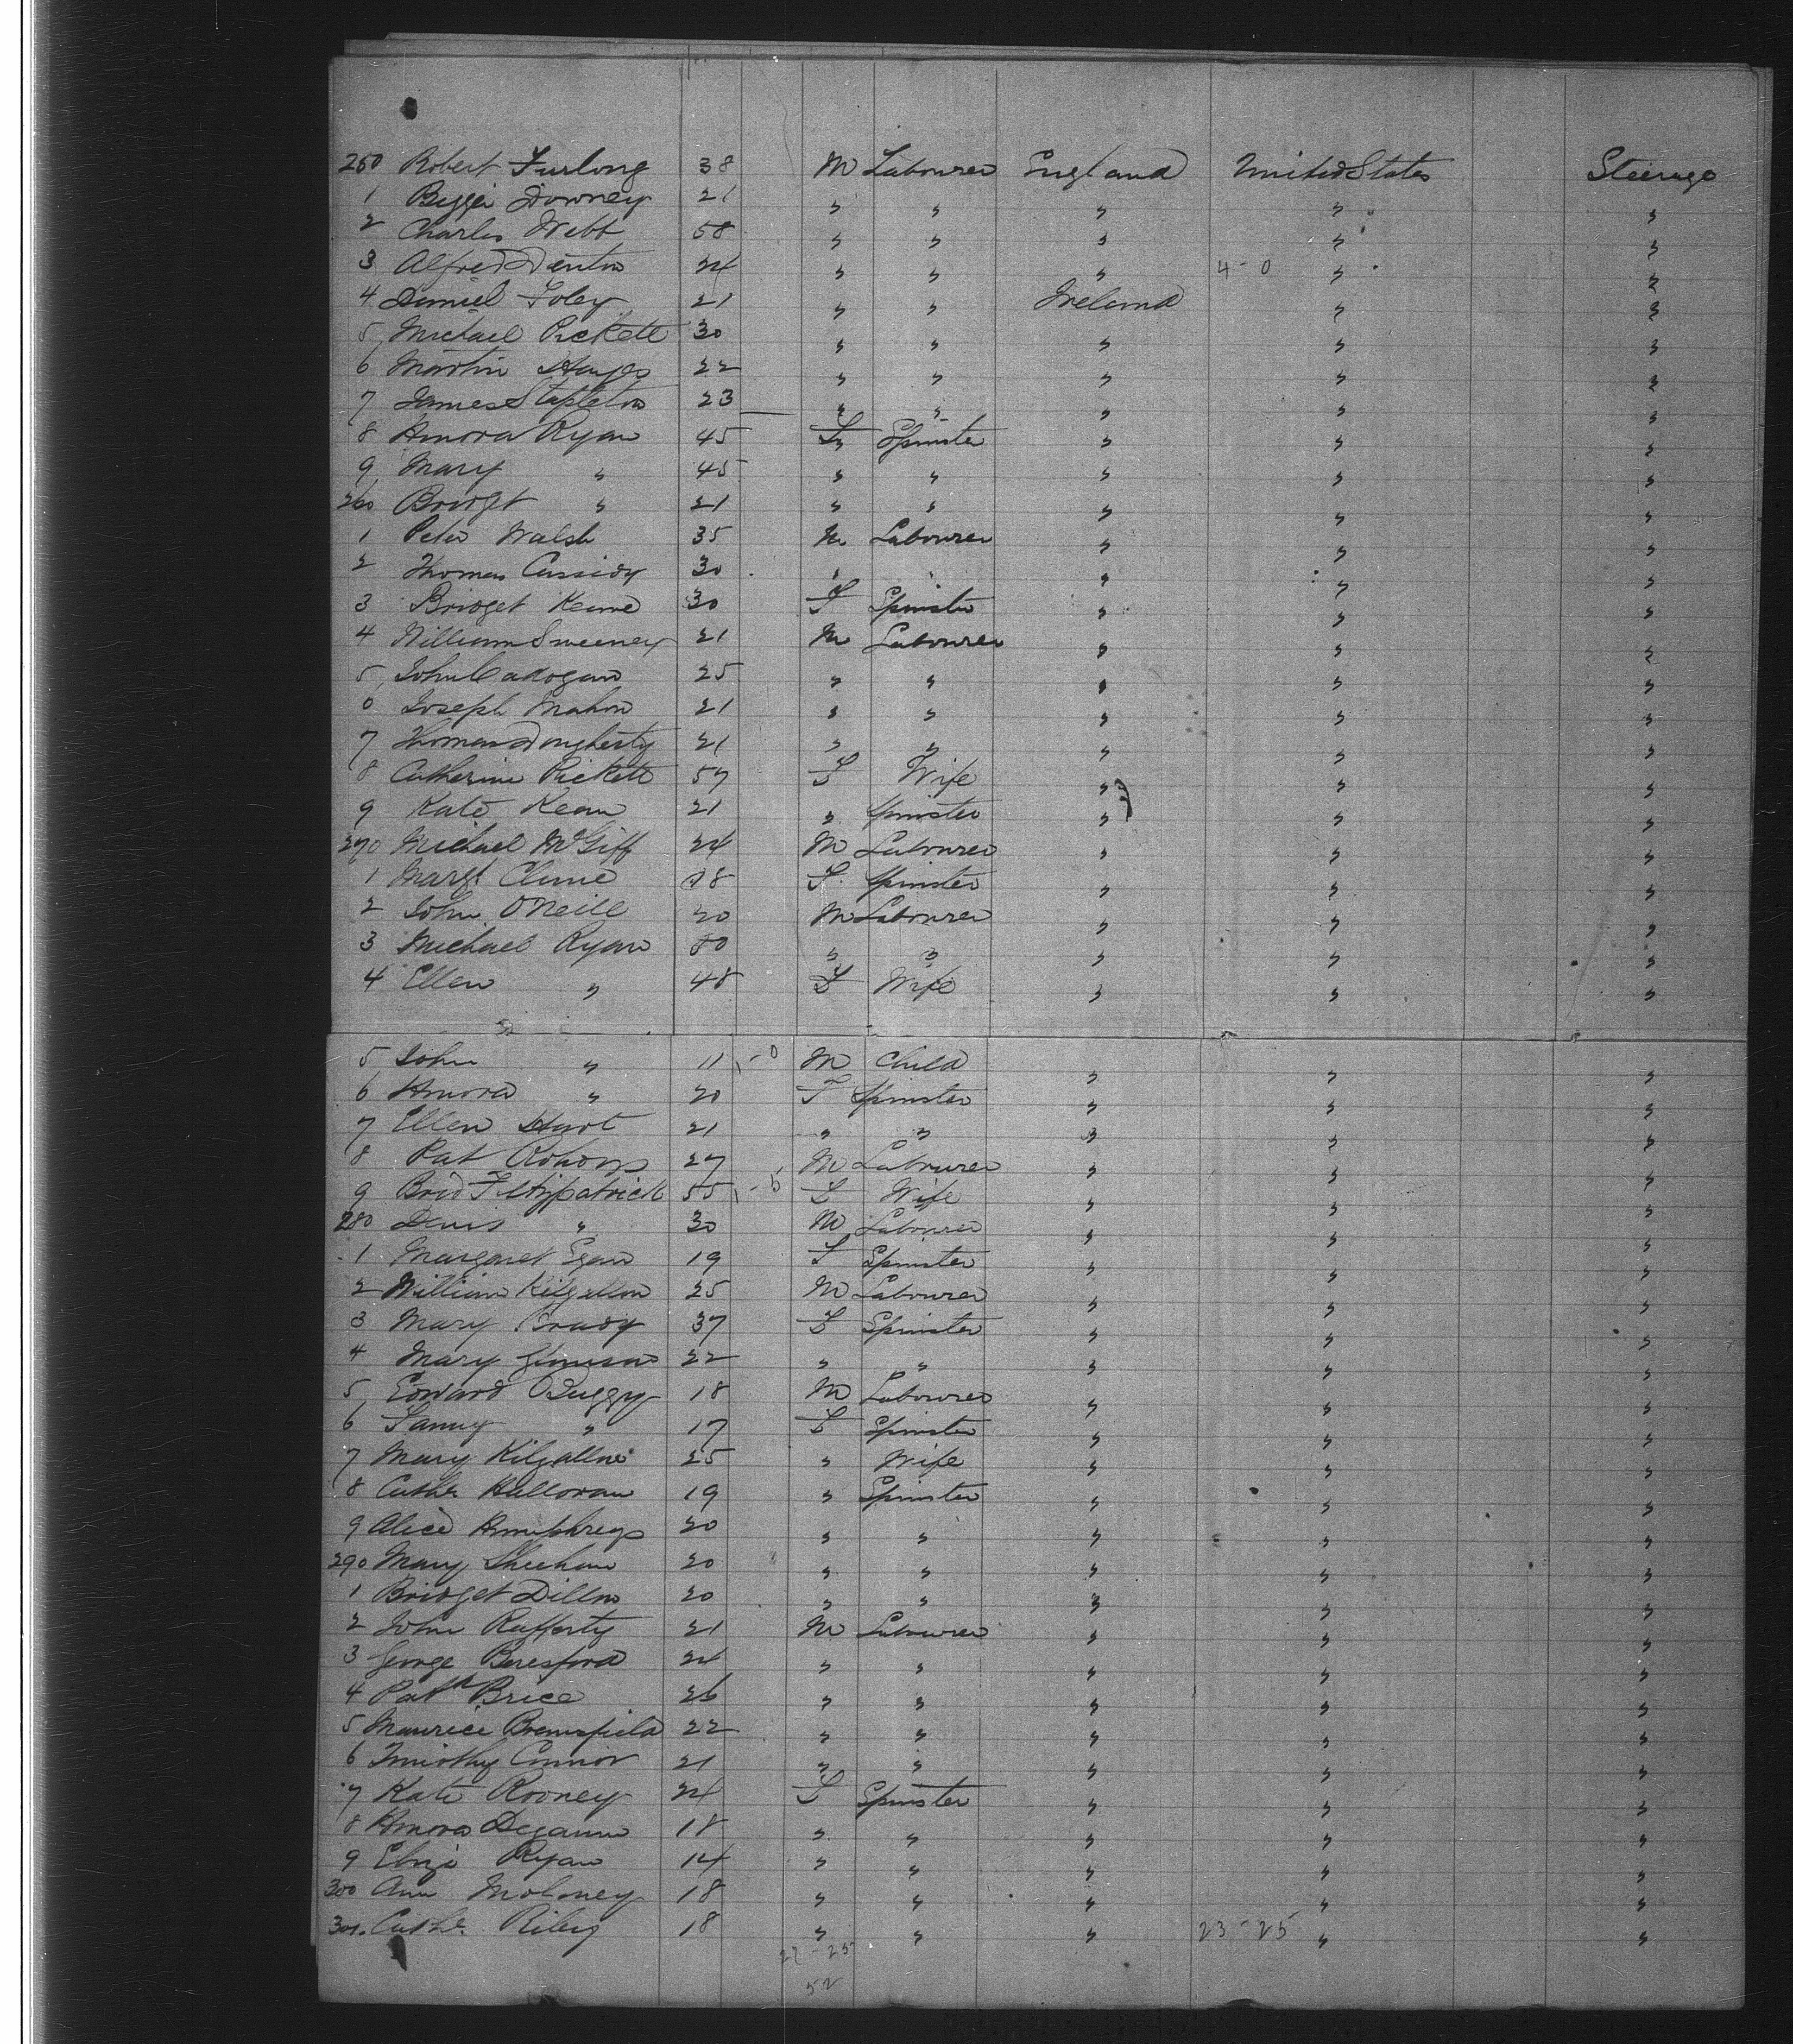 250 Robert Furlong 38 M Labourer England United States Steerage
1 Downey 21 " " " " "
2 Charles Webb 58 " " " " "
3 Alfred Denton 24 " " " 4-0 " "
4 Daniel Foley 21 " " Ireland " "
5 Michael Pickett 30 " " " " "
6 Martin Hayes 22 " " " " "
7 James Stapleton 23 " " " " "
8 Honora Ryan 45 F Spinster " " "
9 Mary " 45 " " " " "
260 Bridget " 21 " " " " "
1 Peter Walsh 35 M Labourer " " "
2 Thomas Cassidy 30 " " " " "
3 Bridget Keane 30 F Spinster " " "
4 William Sweeney 21 M Labourer " " "
5 John Cadogan 25 " " " " "
6 Joseph Mahon 21 " " " " "
7 Thomas Dougherty 21 " " " " "
8 Catherine Pickett 57 F Wife " " "
9 Kate Kean 21 " Spinster " " "
270 Michael McGiff 24 M Labourer " " "
1 Margt Clune 18 F Spinster " " "
2 John O'Neill 20 M Labourer " " "
3 Michael Ryan 50 " " " " "
4 Ellen " 48 F Wife " " "
5 John " 11 1-0 M Child " " "
6 Honora " 20 F Spinster " " "
7 Ellen Hart 21 " " " " "
8 Pat 27 M Labourer " " "
9 Brid Fitzpatrick 55 F Wife " " "
280 Denis " 30 M Labourer " " "
1 Margaret Egan 19 F Spinster " " "
2 William Kilgallon 25 M Labourer " " "
3 Mary Brady 37 F Spinster " " "
4 Mary 22 " " " " "
5 Edward Buggy 18 M Labourer " " "
6 Fanny " 17 F Spinster " " "
7 Mary Kilgallon 25 " Wife " " "
8 Cathe Halloran 19 " Spinster " " "
9 Alice Humphreys 20 " " " " "
290 Mary Sheehan 20 " " " " "
1 Bridget Dillon 20 " " " " "
2 John Rafferty 21 M Labourer " " "
3 George Beresford 24 " " " " "
4 Patk Brice 26 " " " " "
5 Maurice 22 " " " " "
6 Timothy Connor 21 " " " " "
7 Kate Rooney 24 F Spinster " " "
8 Honora 18 " " " " "
9 Eliza Ryan 14 " " " " "
300 Ann Moloney 18 " " " " "
301. Cathe Riley 18 " " " 23-25 " "
27-25
52